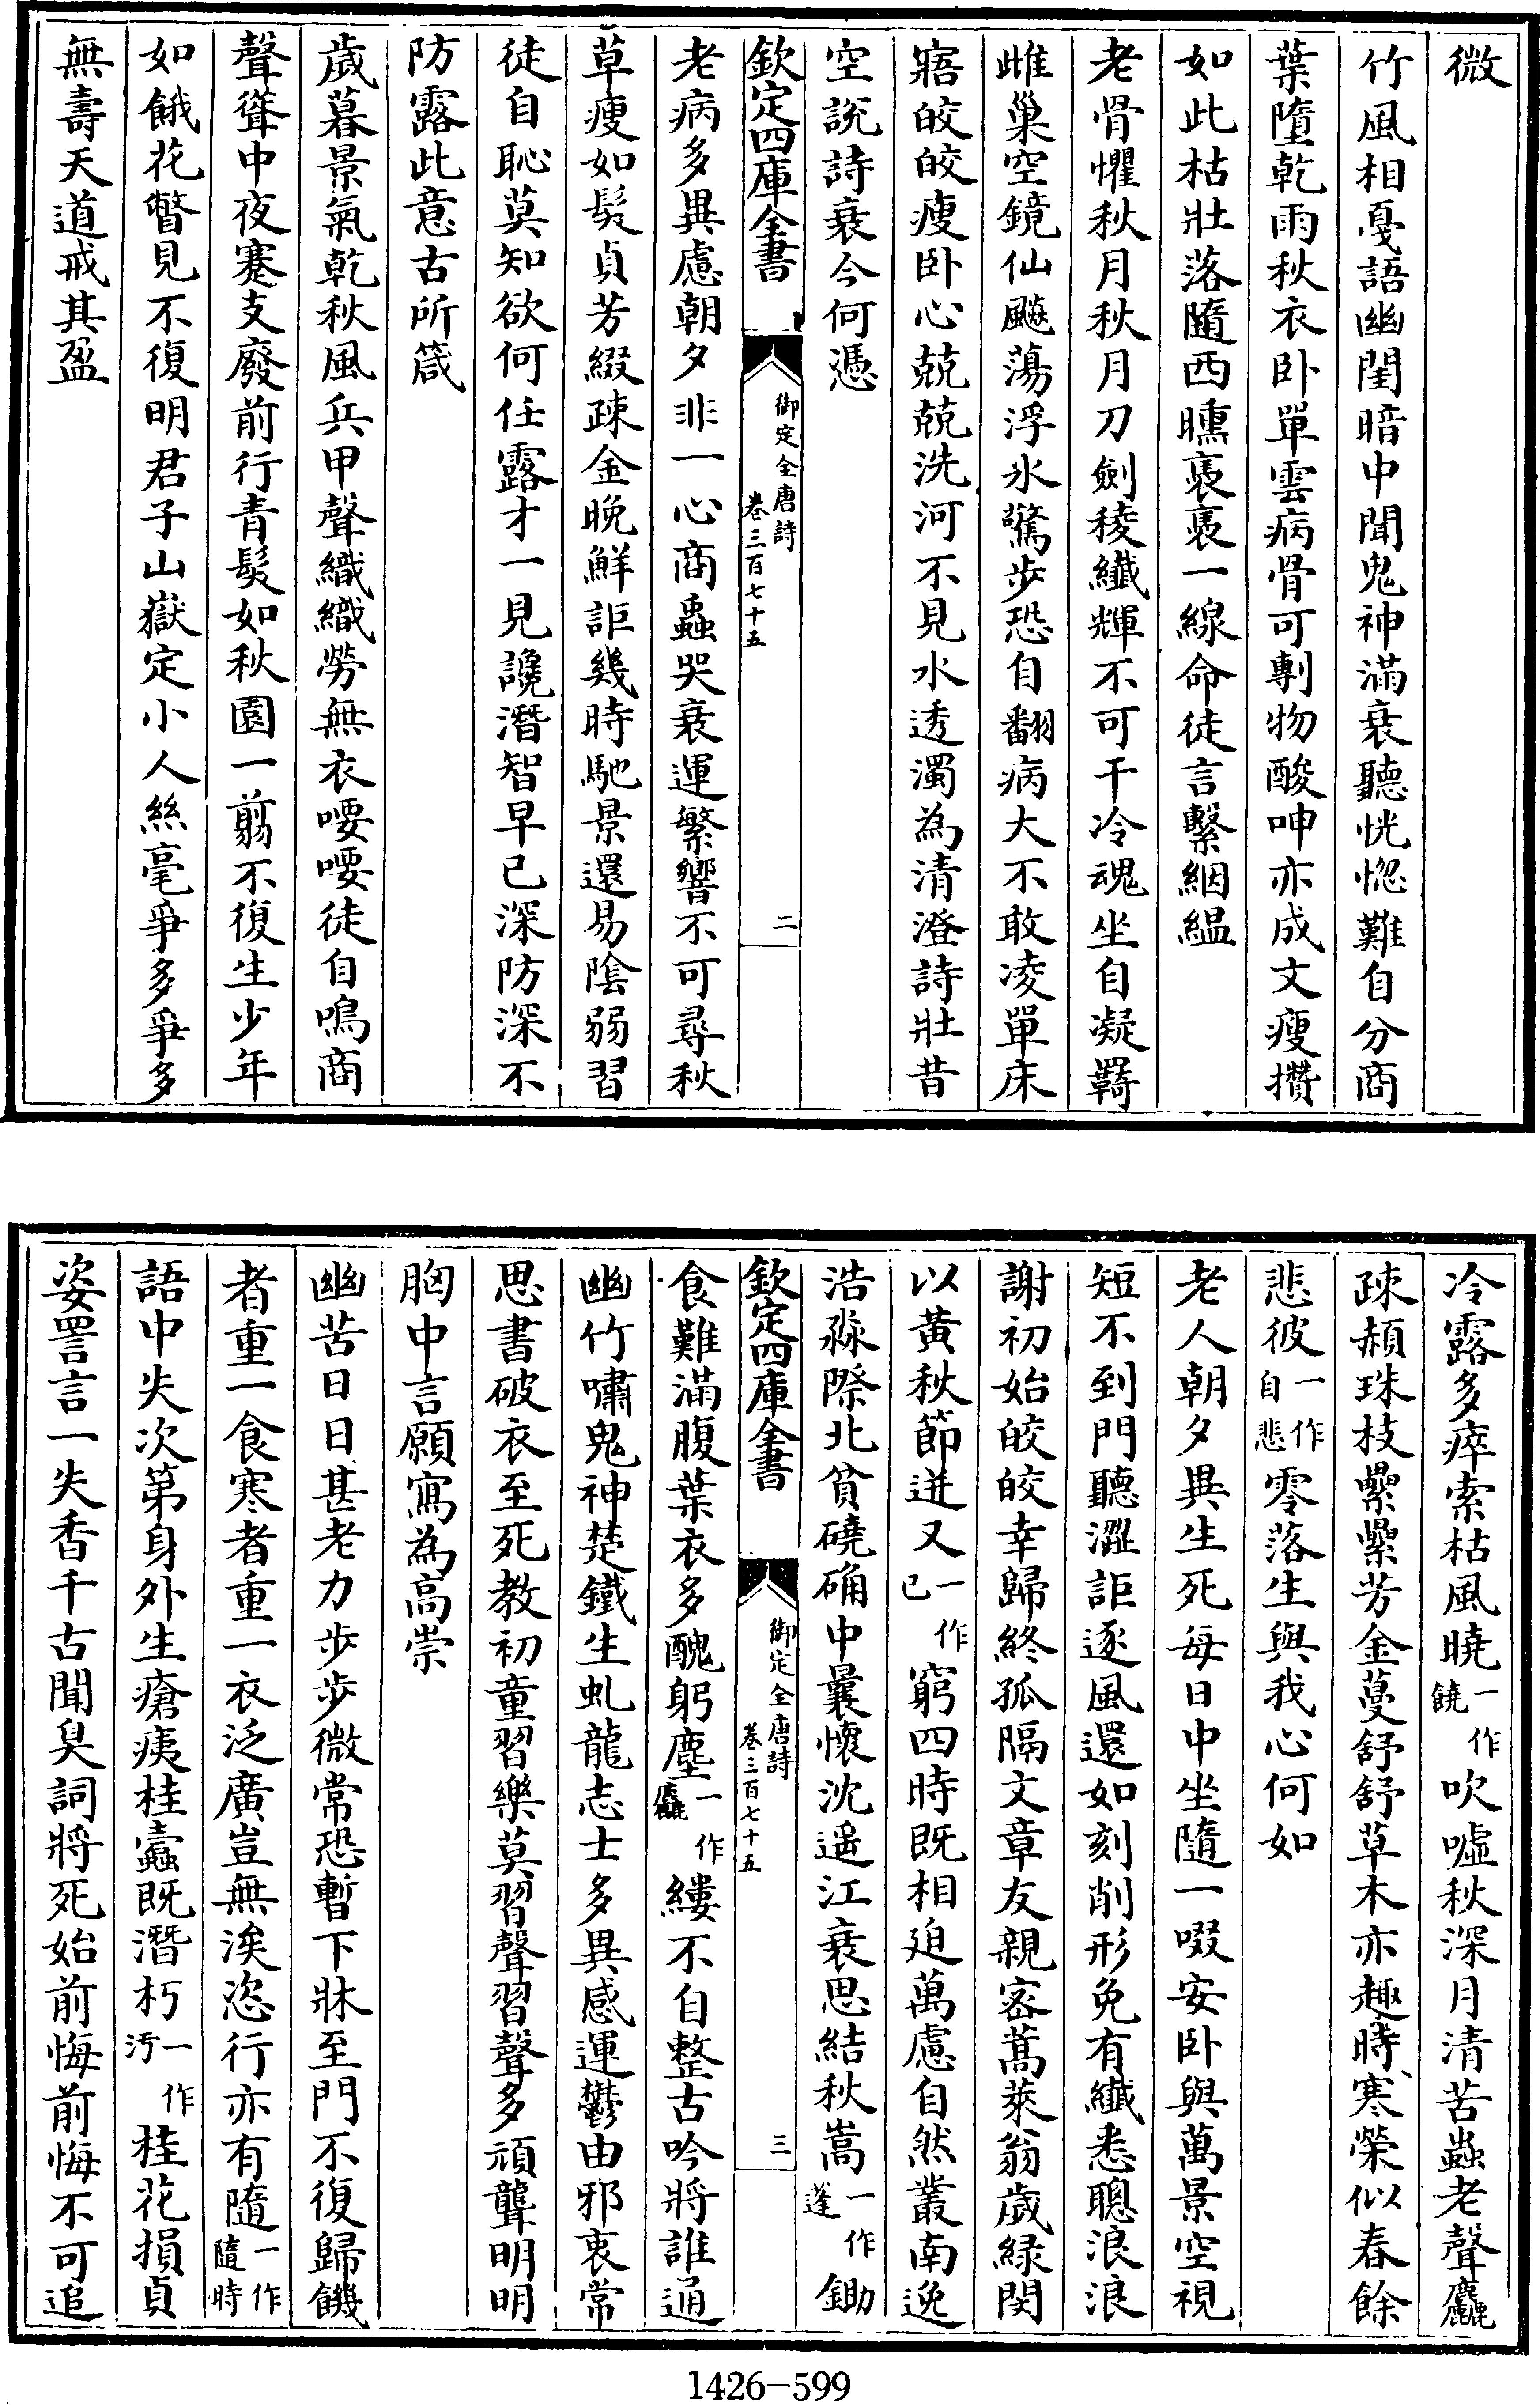 微
竹風相戞語幽閨暗中聞鬼神滿衰聽恍惚難自分商
葉墮乾雨秋衣卧單雲病骨可剸物酸呻亦成文瘦攢
如此枯壯落隨西曛裊裊一線命徒言繫絪緼
老骨懼秋月秋月刀劍稜纖輝不可干冷魂坐自凝羇
雌巢空鏡仙飈蕩浮氷驚步恐自翻病大不敢凌單床
寤皎皎瘦卧心兢兢洗河不見水透濁為清澄詩壯昔
空說詩衰今何憑
欽定四庫全書
御定全唐詩
卷三百七十五
二
老病多異慮朝夕非一心商蟲哭衰運繁響不可尋秋
草瘦如髮貞芳綴疎金晚鮮詎幾時馳景還易陰弱習
徒自恥莫知欲何任露才一見讒潛智早已深防深不
防露此意古所箴
歲暮景氣乾秋風兵甲聲織織勞無衣喓喓徒自鳴商
聲聳中夜蹇支廢前行青髮如秋園一翦不復生少年
如餓花瞥見不復明君子山嶽定小人絲毫爭多爭多
無壽天道戒其盈
冷露多瘁索枯風曉一作饒吹噓秋深月清苦蟲老聲麤
疎頳珠枝纍纍芳金蔓舒舒草木亦趣時寒榮似春餘
悲彼一作自悲零落生與我心何如
老人朝夕異生死每日中坐隨一啜安卧與萬景空視
短不到門聽澀詎逐風還如刻削形免有纖悉聰浪浪
謝初始皎皎幸歸終孤隔文章友親密蒿萊翁歲緑閔
以黃秋節迸又一作已窮四時既相迫萬慮自然叢南逸
浩淼際北貧磽确中曩懷沈遥江衰思結秋嵩一作蓬鋤
欽定四庫全書
御定全唐詩
卷三百七十五
三
食難滿腹葉衣多醜躬塵一作麤縷不自整古吟將誰通
幽竹嘯鬼神楚鐵生虬龍志士多異感運鬱由邪衷常
思書破衣至死教初童習樂莫習聲習聲多頑聾明明
胸中言願寫為高崇
幽苦日日甚老力步步微常恐暫下牀至門不復歸饑
者重一食寒者重一衣泛廣豈無涘恣行亦有隨一作隨時
語中失次第身外生瘡痍桂蠹既潛朽一作汚桂花損貞
姿詈言一失香千古聞臭詞將死始前悔前悔不可追
1426-599